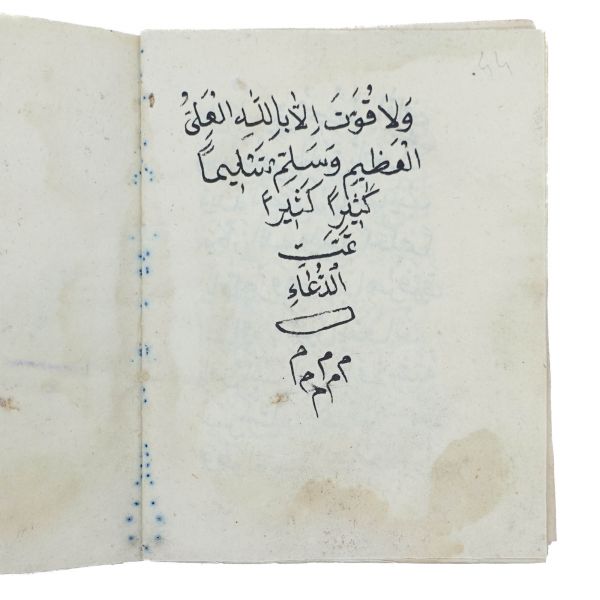 44
وَلَا قُوَّتَ اِلَّا بِاللّٰهِ الْعَلِىُّ
الْعَظِيمِ وَسَلِّمْ تَسْلِيمًا
كَثِيرًا كَثِيرًا
تَمَّتَ
الدُّعَاءِ
م م م
م م م